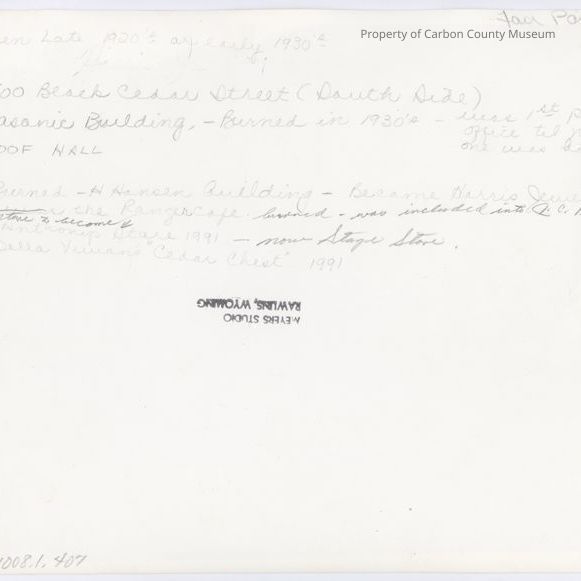 Fair Pa
Property of Carbon County Museum
en Late 1920's or early 1930's
00 Block Cedar Street (South Side)
asonic Building, - Burned in 1930's - was 1st P
office til
OOF HALL
one was
urned - H Hansen Building - Became Harris Jewe
the Ranger Cafe. burned - was included into J. C.
store to become
Anthonys Store 1991 - now Stage Store.
Bella Vivian's "Cedar Chest" 1991
MEYERS STUDIO
RAWLINS, WYOMING
008.1.407